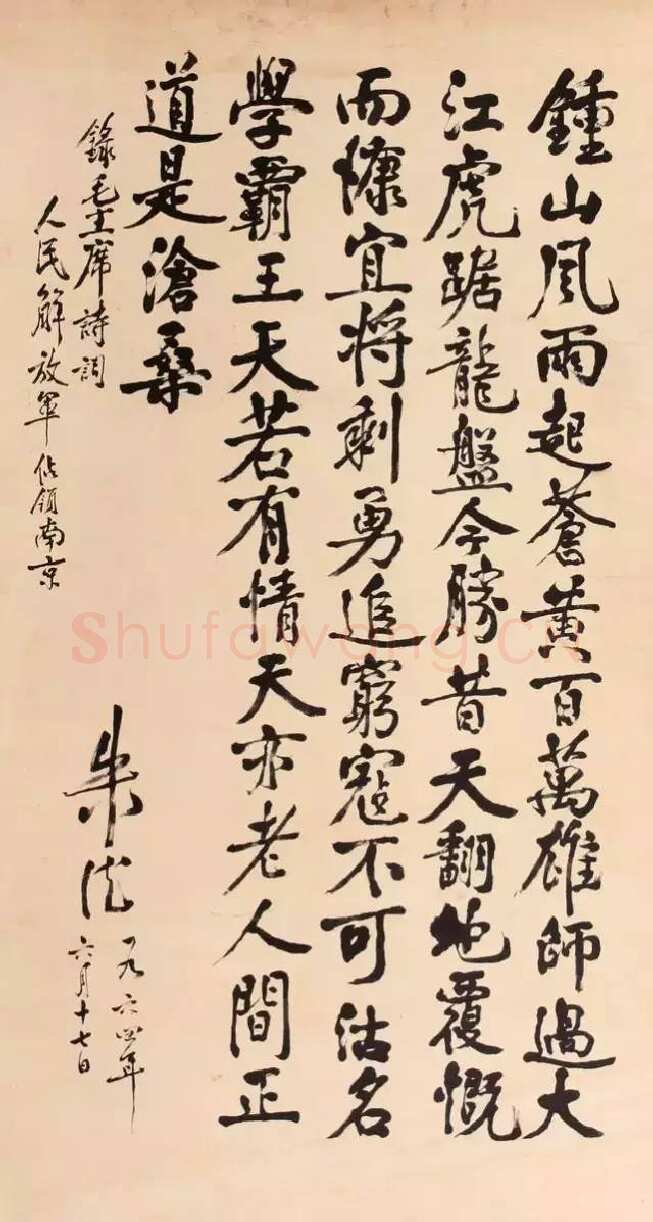 鍾山風雨起蒼黃百萬雄師過大
江虎踞龍盤今勝昔天翻地覆慨
而慷宜將剩勇追窮寇不可沽名
學霸王天若有情天亦老人間正
道是滄桑
錄毛主席詩詞
人民解放軍佔領南京
朱德
一九六四年
六月十七日
Shufawang.CN